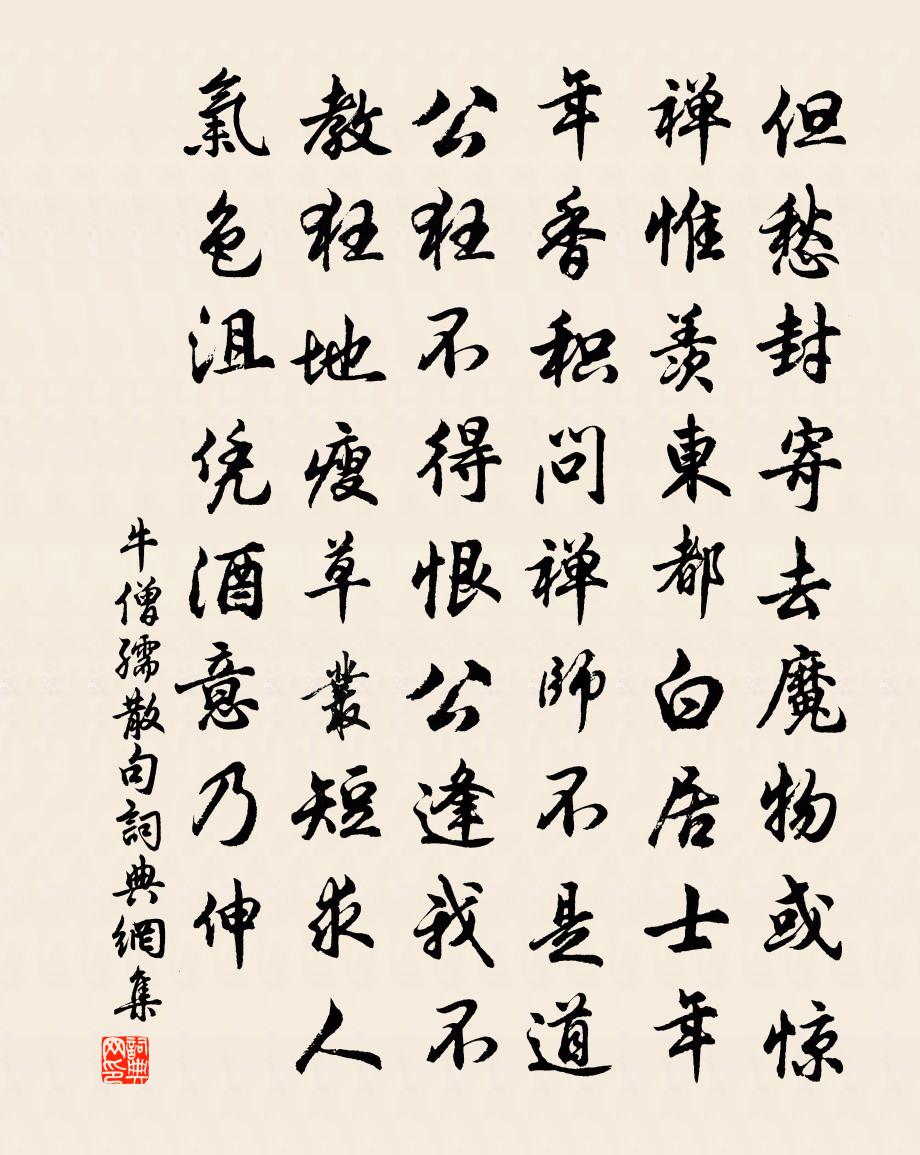 但愁封寄去魔物或惊
禅惟羨東都白居士年
年香积問禅師不是道
公狂不得恨公逢我不
教狂地瘦草叢短求人
氣色沮凭酒意乃伸
牛僧孺散句詞典網集
詞典网印